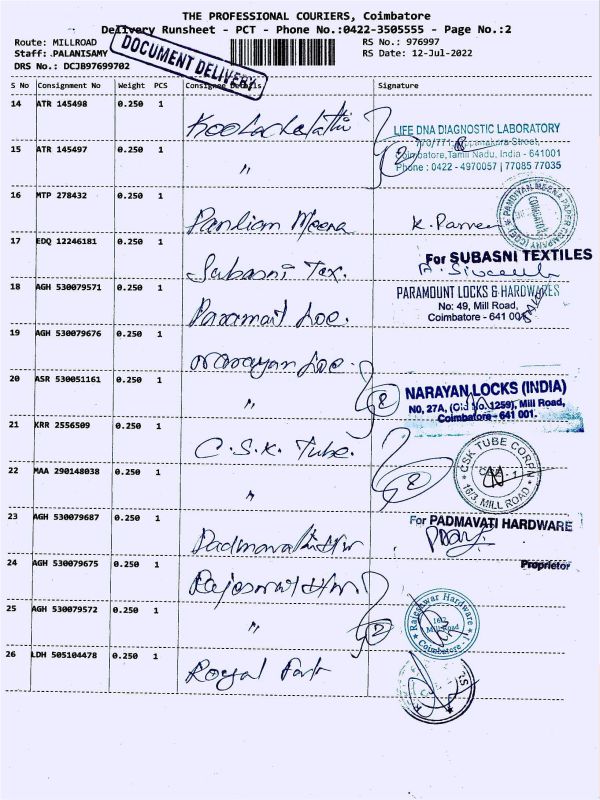 THE PROFESSIONAL COURIERS, Coimbatore
Delivery Runsheet - PCT - Phone No.:0422-3505555 - Page No.:2
Route: MILLROAD
Staff: PALANISAMY
DRS No.: DCJB97699702
DOCUMENT DELIVERY
RS No.: 976997
RS Date: 12-Jul-2022
S No Consignment No Weight PCS Consignee Details Signature
14 ATR 145498 0.250 1
LIFE DNA DIAGNOSTIC LABORATORY
15 ATR 145497 0.250 1 〃
Coimbatore, Tamil Nadu, India - 641001
Phone : 0422 - 4970057 | 77085 77035
16 MTP 278432 0.250 1 Panliam Meena K. Parveen
PANDIYAN MEENA PAPER COMPANY (CBE)
COIMBATORE
17 EDQ 12246181 0.250 1 Subasni Tex.
For SUBASNI TEXTILES
18 AGH 530079571 0.250 1 Paramait Loc.
PARAMOUNT LOCKS & HARDWARES
No: 49, Mill Road,
Coimbatore - 641 001
19 AGH 530079676 0.250 1 Narayan Loc.
20 ASR 530051161 0.250 1 〃 2
NARAYAN LOCKS (INDIA)
NO, 27A, (Old No. 1259), Mill Road,
Coimbatore - 641 001.
21 KRR 2556509 0.250 1 C.S.K. Tube.
22 MAA 290148038 0.250 1 〃 2
CSK TUBE CORPN
16/3, MILL ROAD
23 AGH 530079687 0.250 1 Padmavathi H/w
For PADMAVATI HARDWARE
Proprietor
24 AGH 530079675 0.250 1 Rajeswar H/w
25 AGH 530079572 0.250 1 〃 2
Rajeshwar Hardware
Mill Road
Coimbatore - 1
26 LDH 505104478 0.250 1 Royal